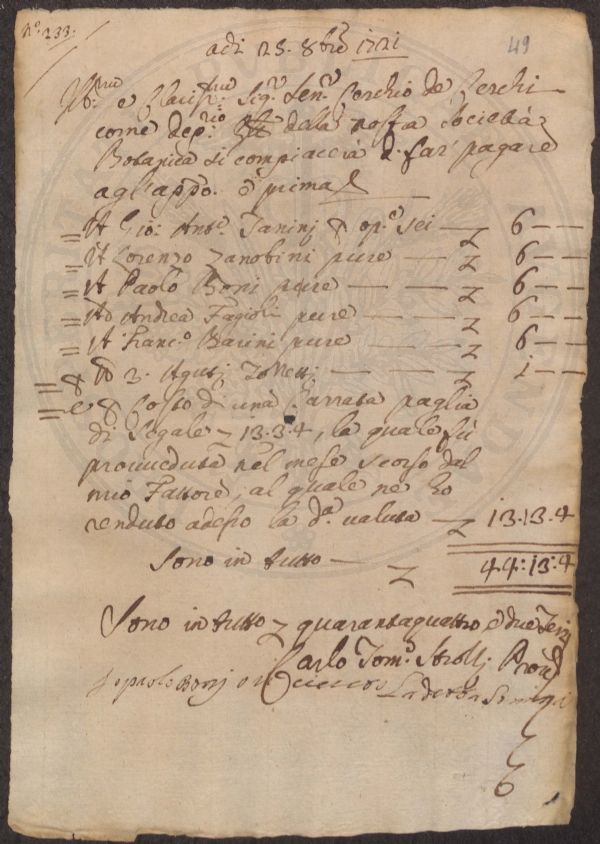 N.º 233.
49
adi 25. 8bre 1721
Ill:mo e Clariss:mo Sig.re Sen.re Cerchio de Cerchi
come dep:rio della nostra Società
Botanica si compiaccia di far' pagare
agl'appo. e prima
A Gio: Ant.o Tanini p op.e sei — 6 — —
A Lorenzo Zanobini pure — 6 — —
A Paolo Boni pure — — 6 — —
Ad Andrea Fagioli pure — 6 — —
A Franc.o Barini pure — 6 — —
3. — — 1 — —
e p Costo di una Carrata paglia
di Segale 13.3.4, la quale fù
proveduta nel mese scorso dal
mio Fattore, al quale ne ho
renduto adesso la d.a valuta — 13.13.4
Sono in tutto — 44:13:4
Sono in tutto quarantaquattro e due terzi
Carlo Tom.o Strozzi Prov.
Io paolo Bonj